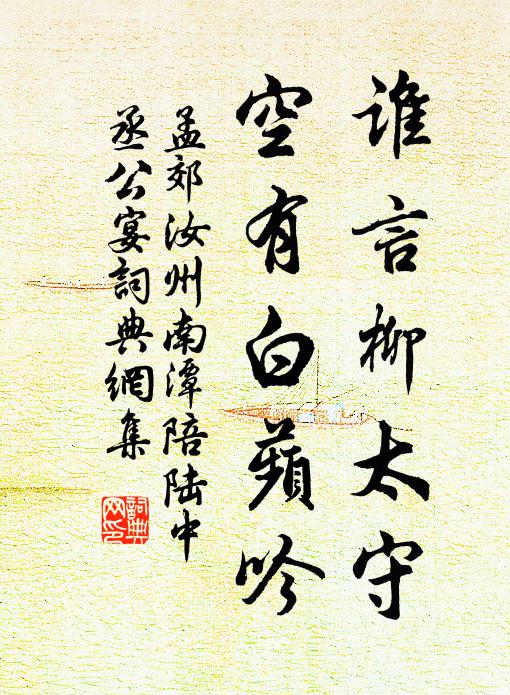 谁言柳太守
空有白蘋吟
孟郊汝州南潭陪陆中
丞公宴詞典網集
詞典网印